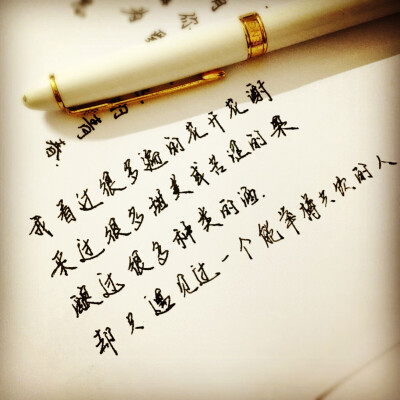 我看过很多遍的花开花谢
采过很多甜美或苦涩的果
酿过很多种类的酒
却只遇见过一个能举樽共饮的人